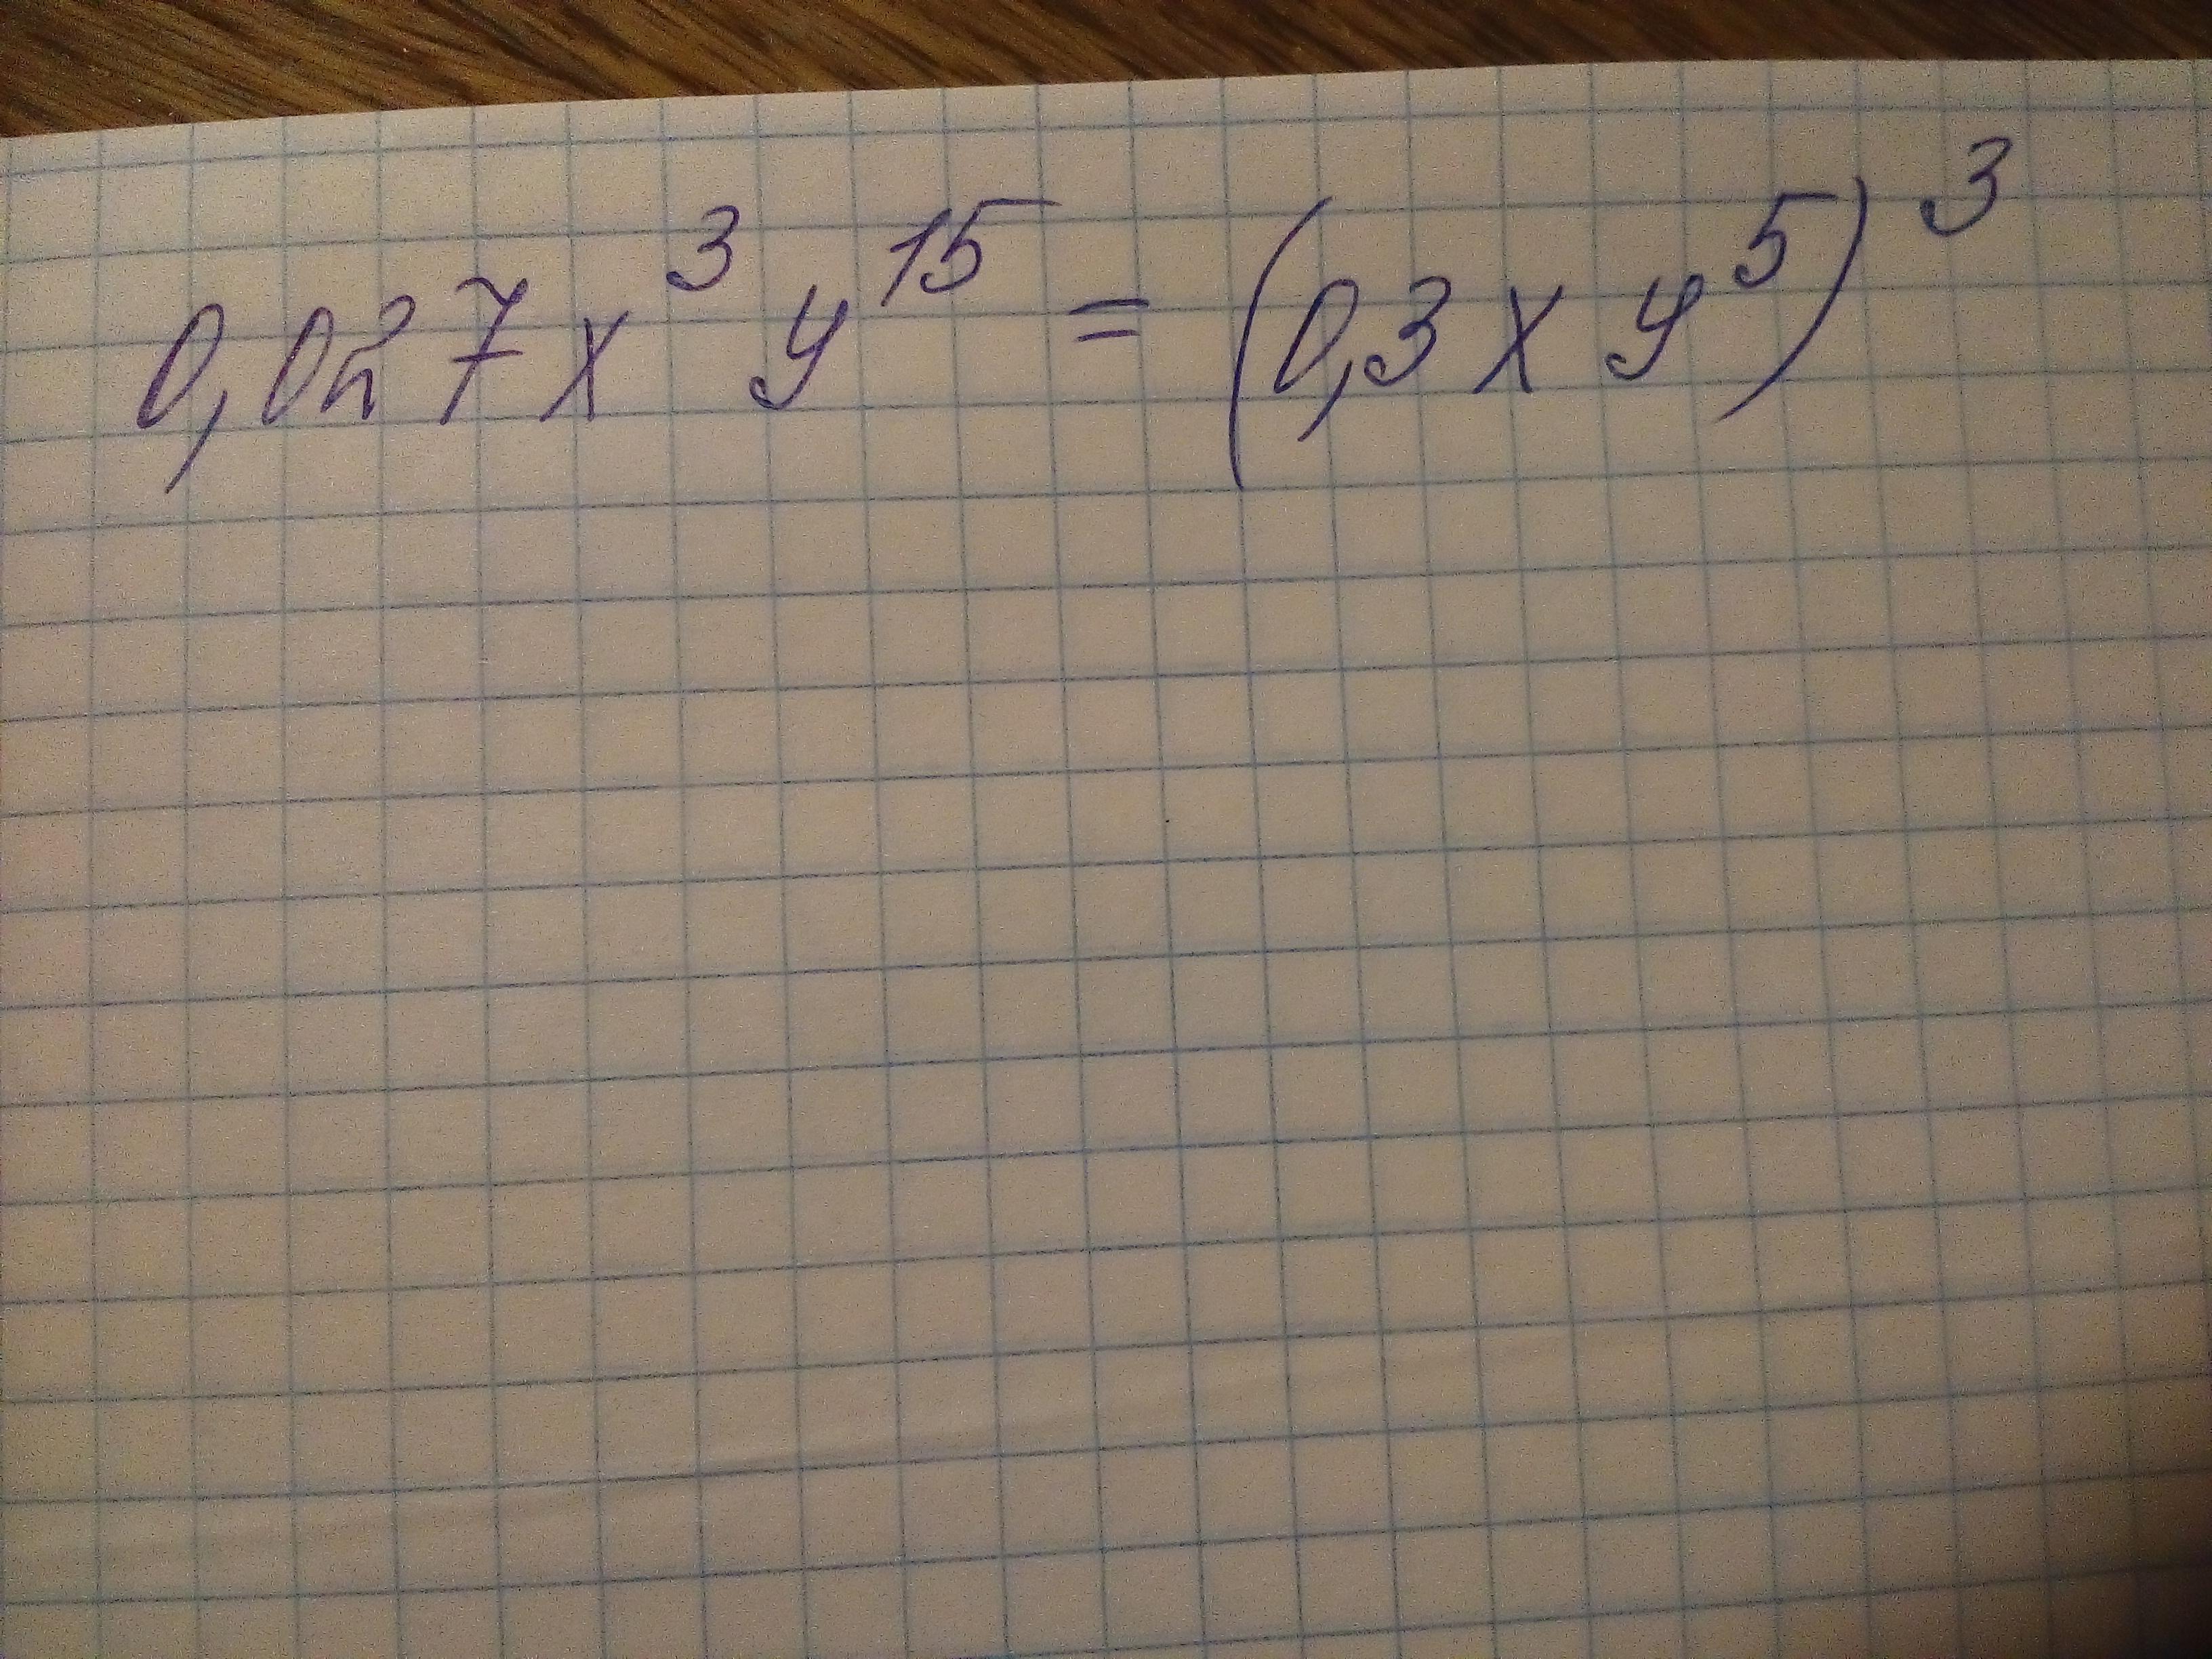 0,027x³y¹⁵ = (0,3xy⁵)³